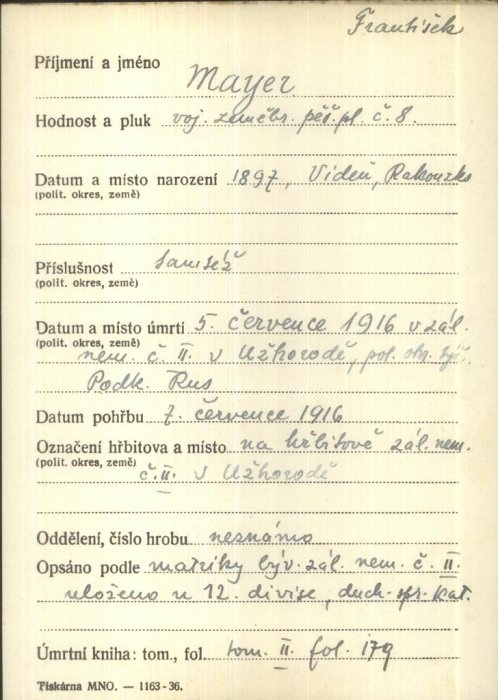 František
Příjmení a jméno Mayer
Hodnost a pluk voj. zeměbr. pěš. pl. č. 8.
Datum a místo narození 1897, Vídeň, Rakousko
(polit. okres, země)
Příslušnost tamtéž
(polit. okres, země)
Datum a místo úmrtí 5. července 1916 v zál.
(polit. okres, země)
nem. č. II. v Užhorodě, pol. okr. týž.
Podk. Rus
Datum pohřbu 7. července 1916
Označení hřbitova a místo na hřbitově zál. nem.
(polit. okres, země) č. II. v Užhorodě
Oddělení, číslo hrobu neznámo
Opsáno podle matriky býv. zál. nem. č. II.
uloženo u 12. divise, duch. spr. kat.
Úmrtní kniha: tom., fol. tom. II. fol. 179
Tiskárna MNO. — 1163-36.